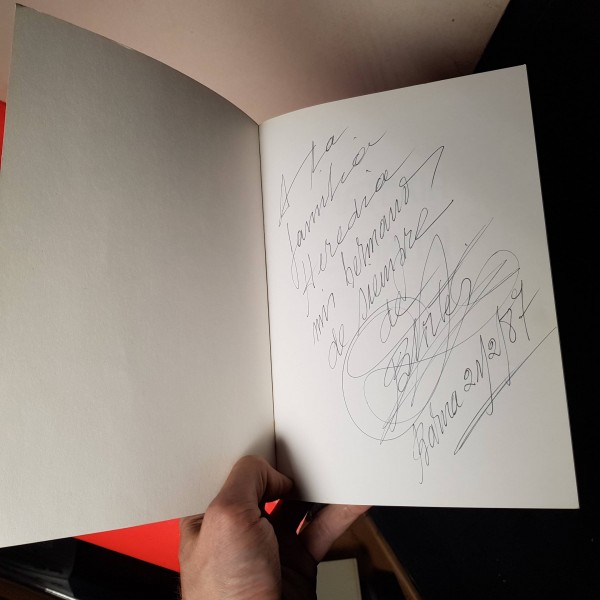 A la
familia
Heredia
mis hermanos
de siempre
de
Barna 21/2/87